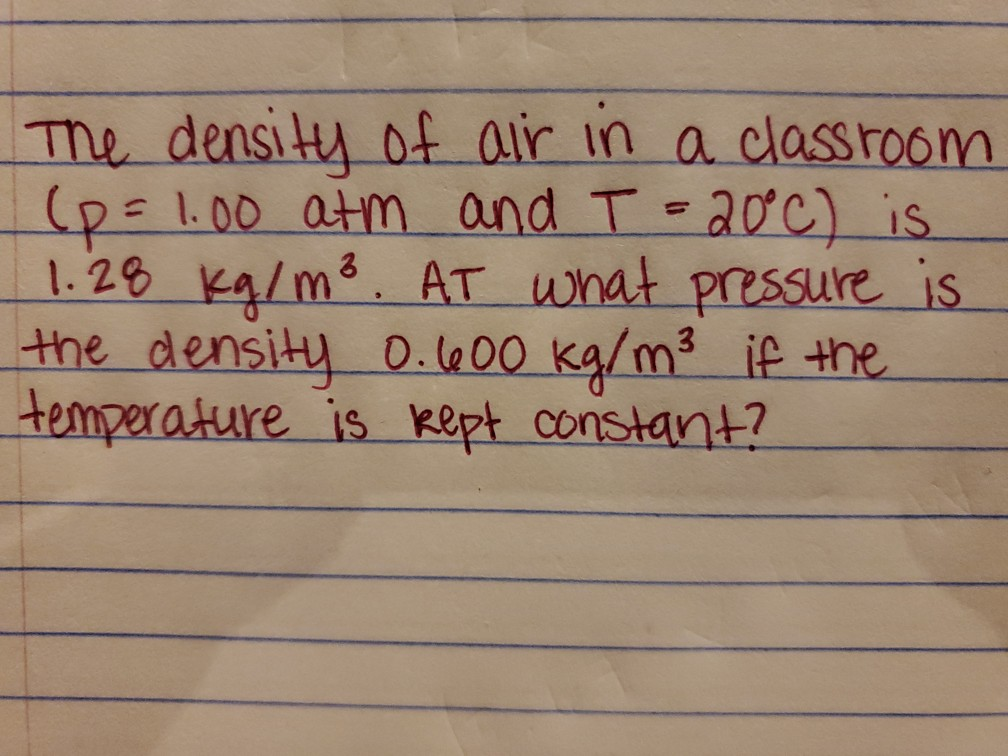 The density of air in a classroom
(p = 1.00 atm and T = 20°C) is
1.28 kg/m³. AT what pressure is
the density 0.600 kg/m³ if the
temperature is kept constant?